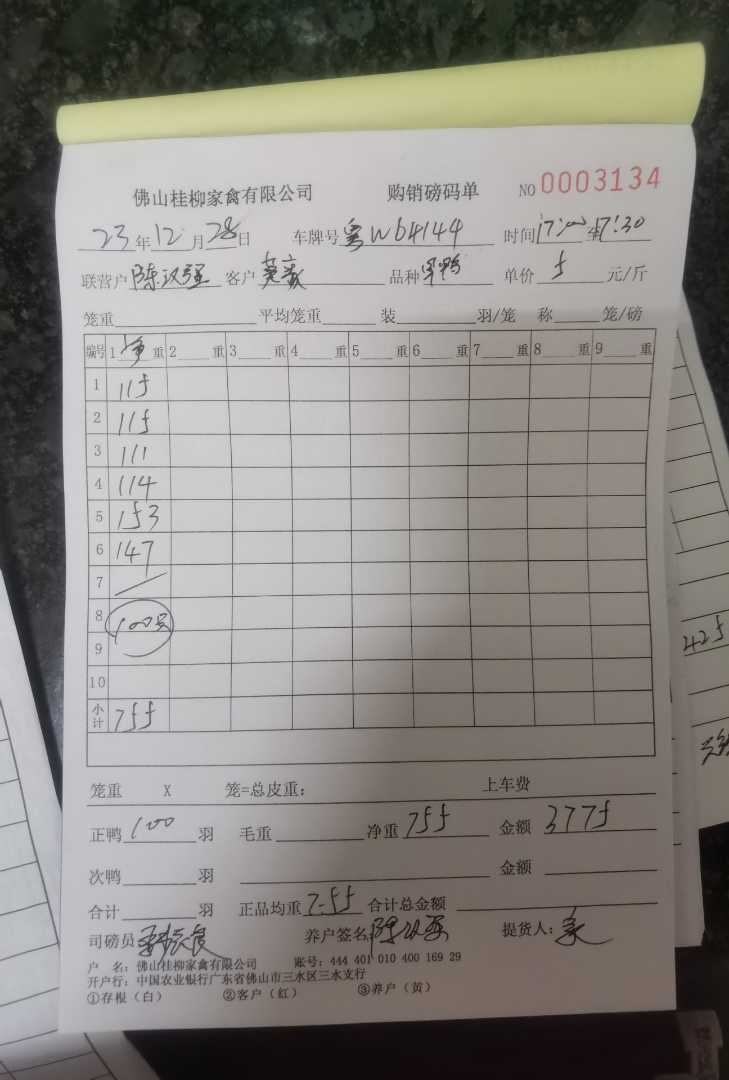 佛山桂柳家禽有限公司 购销磅码单 NO 0003134
23年12月28日 车牌号 粤W64144 时间 17:00至17:30
联营户 陈汉强 客户 品种 单价 5 元/斤
笼重 平均笼重 装 羽/笼 称 笼/磅
编号 1 净 重 2 重 3 重 4 重 5 重 6 重 7 重 8 重 9 重
1 115
2 115
3 111
4 114
5 153
6 147
7
8 100只
9
10
小计 755
笼重 X 笼=总皮重: 上车费
正鸭 100 羽 毛重 净重 755 金额 3775
次鸭 羽 金额
合计 羽 正品均重 7.55 合计总金额
司磅员 养户签名 陈汉强 提货人:
户 名: 佛山桂柳家禽有限公司 账号: 444 401 010 400 169 29
开户行: 中国农业银行广东省佛山市三水区三水支行
①存根(白) ②客户(红) ③养户(黄)
425